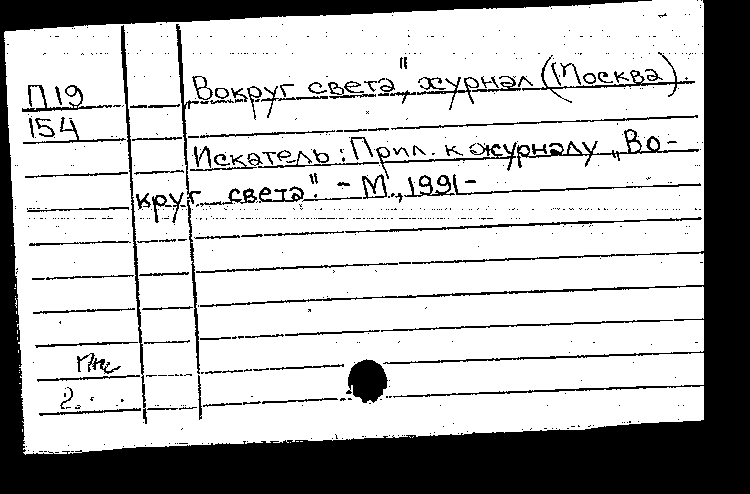 П19
154
„Вокруг света", журнал (Москва).
Искатель: Прил. к журналу „Во-
круг света". - М., 1991-
2.